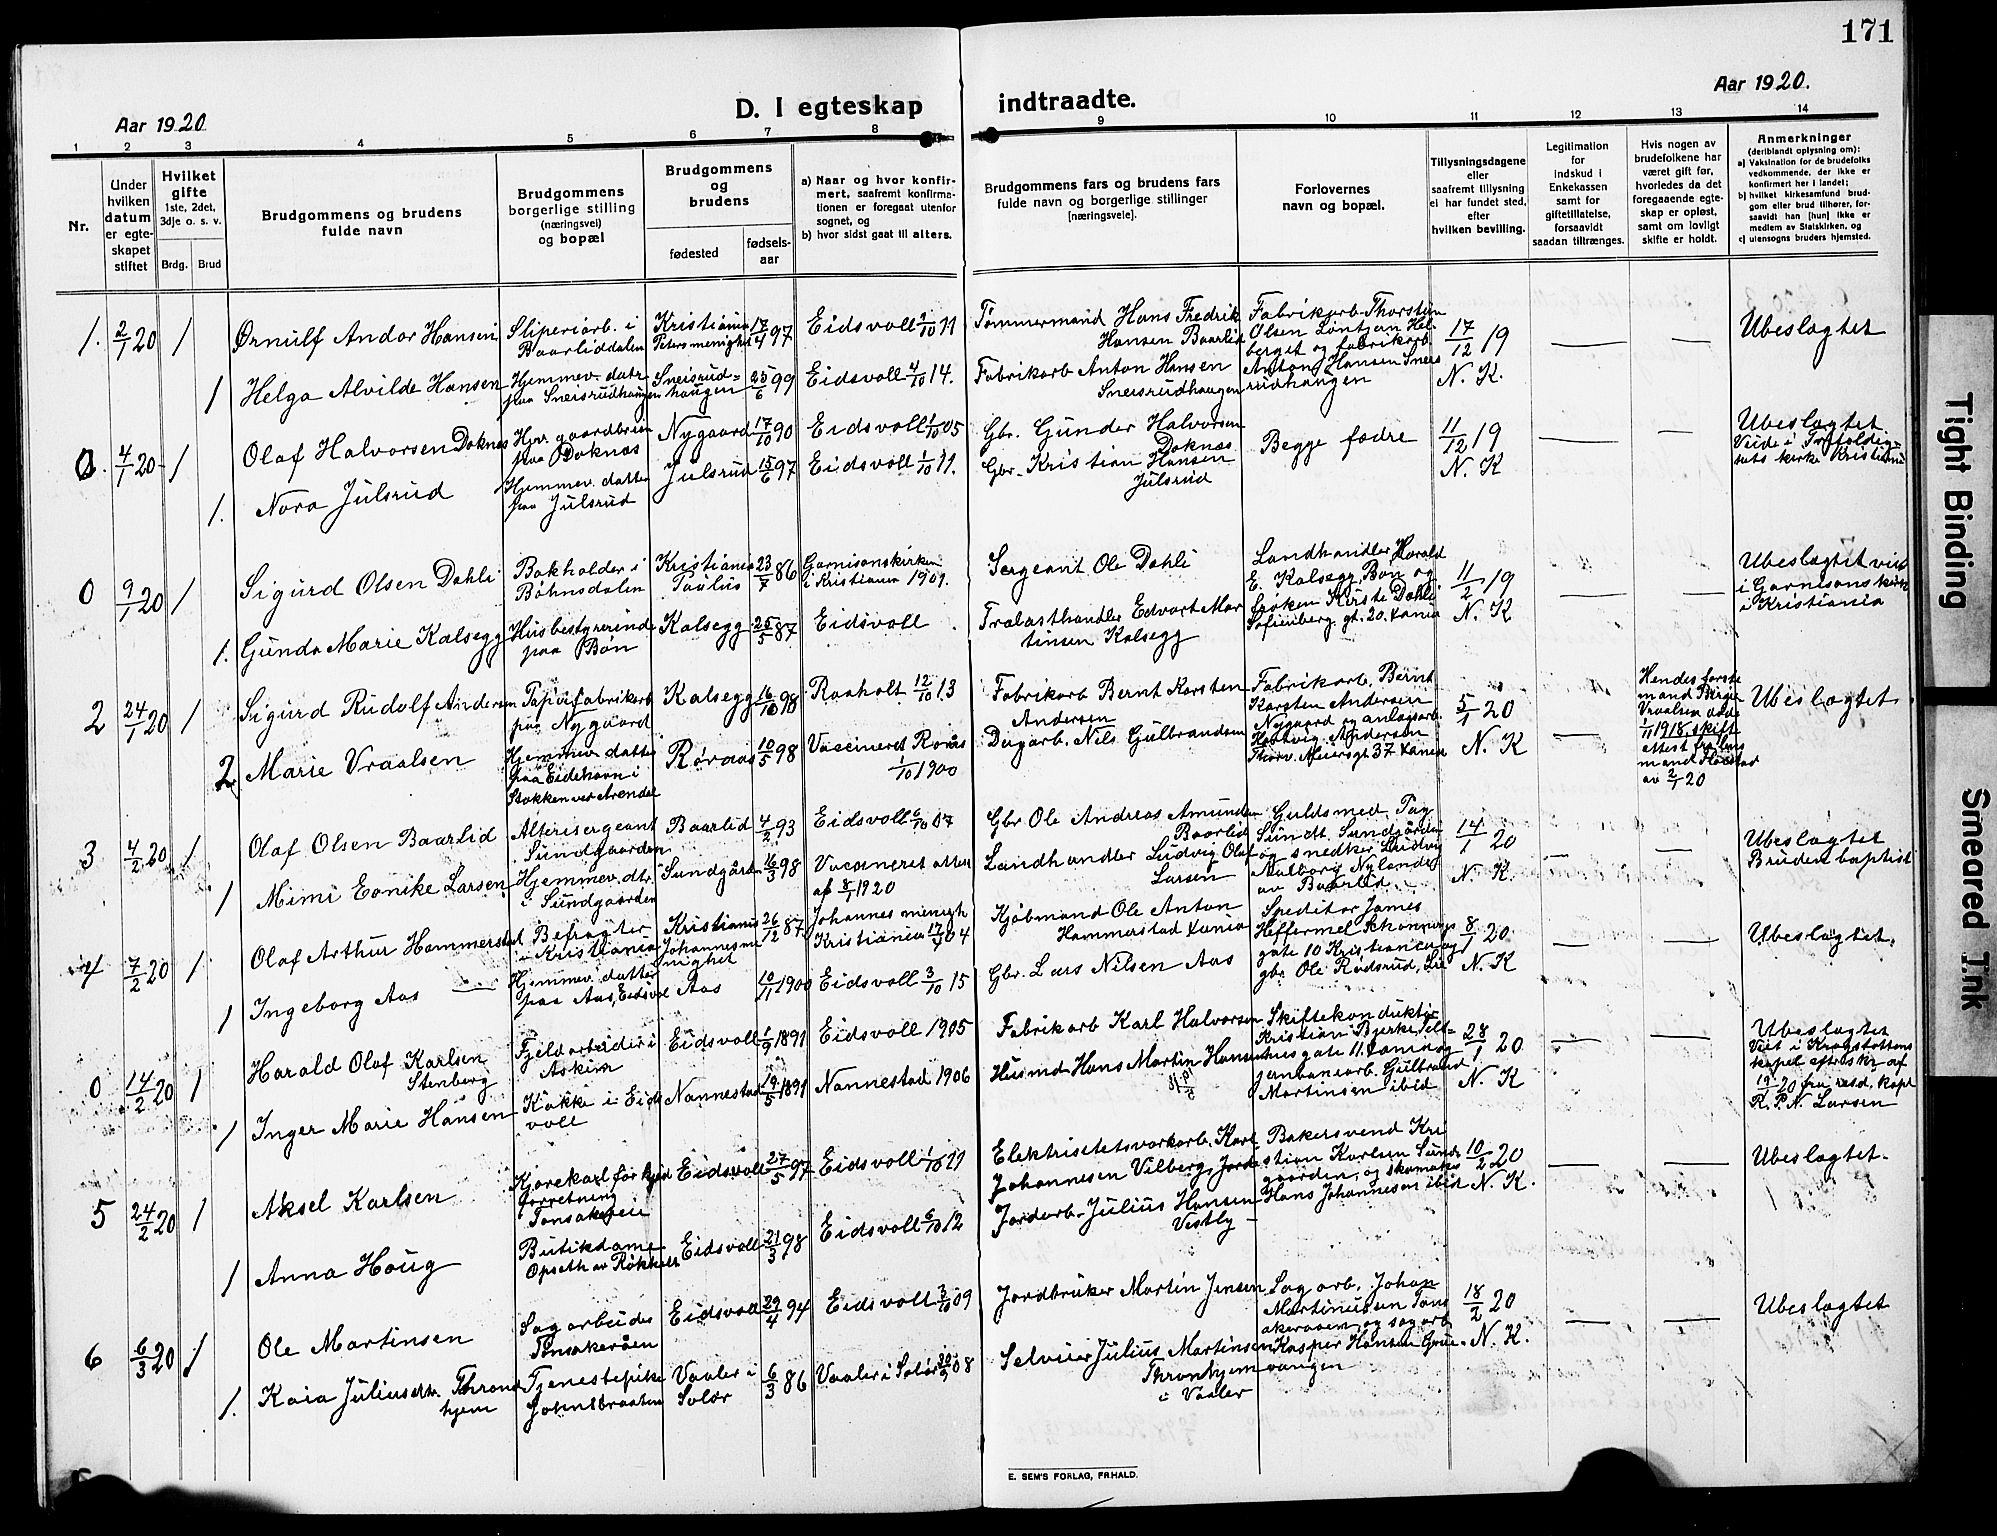 171
Aar 1920
D. I egteskap indtraadte.
Aar 1920.
1 2 3 4 5 6 7 8 9 10 11 12 13 14
Nr.
Under hvilken datum er egteskapet stiftet
Hvilket gifte 1ste, 2det, 3dje o. s. v.
Brdg. Brud
Brudgommens og brudens fulde navn
Brudgommens borgerlige stilling (næringsvei) og bopæl
Brudgommens og brudens
fødested
fødsels-aar
a) Naar og hvor konfirmert, saafremt konfirmationen er foregaat utenfor sognet, og
b) hvor sidst gaat til alters.
Brudgommens fars og brudens fars fulde navn og borgerlige stillinger [næringsveie].
Forlovernes navn og bopæl.
Tillysningsdagene eller saafremt tillysning ei har fundet sted, efter hvilken bevilling.
Legitimation for indskud i Enkekassen samt for giftetillatelse, forsaavidt saadan tiltrænges.
Hvis nogen av brudefolkene har været gift før, hvorledes da det foregaaende egteskap er opløst, samt om lovligt skifte er holdt.
Anmerkninger (deriblandt oplysning om):
a) Vaksination for de brudefolks vedkommende, der ikke er konfirmert her i landet;
b) hvilket kirkesamfund brudgom eller brud tilhører, forsaavidt han [hun] ikke er medlem av Statskirken, og
c) utensogns bruders hjemsted.
1. 2/1 20 1 Ørnulf Andor Hansen Sliperiarb. i Baarliddalen Kristiania Petersmenighet 17/4 97 Eidsvoll 1/10 11 Tømmermand Hans Fredrik Hansen Baarlid Fabrikarb. Thorstein Olsen Løntjan Helberget og fabrikarb. Anton Hansen Sneisrudhaugen 17/12 19 N. K. Ubeslægtet
1 Helga Alvilde Hansen Hjemmev. datr. paa Sneisrudhaugen Sneisrudhaugen 25/6 99 Eidsvoll 4/10 14. Fabrikarb Anton Hansen Sneisrudhaugen
0. 4/1 20 1 Olaf Halvorsen Doknes Hjv. gaardbruk paa Doknes Nygaard 17/10 90 Eidsvoll 1/10 05 Gbr. Gunder Halvorsen Doknes Begge fædre 11/12 19 N. K Ubeslægtet. Viede i Trefoldighets kirke Kristiania
1. Nora Julsrud Hjemmev. datter paa Julsrud Julsrud 15/6 97 Eidsvoll 1/10 11. Gbr. Kristian Hansen Julsrud
0 9/1 20 1 Sigurd Olsen Dahli Bokholder i Bøhnsdalen Kristiania Paulus 23/7 86 Garnisonskirken i Kristiania 1901. Sergeant Ole Dahli Landhandler Harald E. Kalsegg, Bøn og frøken Kirste Dahli Sofienberg gt. 20. Kania 11/2 19 N. K Ubeslægtet viet i Garnisons kirke i Kristiania
1. Gunda Marie Kalsegg Husbestyrerinde paa Bøn Kalsegg 25/5 87 Eidsvoll Trælasthandler Edvart Martinsen Kalsegg
2 24/1 20 1 Sigurd Rudolf Andersen Papirfabrikarb paa Nygaard Kalsegg 16/10 98 Raaholt 12/10 13 Fabrikarb Bernt Karsten Andersen Fabrikarb. Bernt Karsten Andersen Nygaard og anlægsarb. Hartvig Andersen Thorv. Meiersgt 37 Kania 5/1 20 N. K Hendes første mand Birger Vraalsen døde 1/11 1918, skifteattest fra lensmand av 2/1 20 Ubeslægtet
2 Marie Vraalsen Hjemmev. datter paa Eidehavn i Stokken ved Arendal Røraas 10/5 98 Vaccineret Røros 1/10 1900 Dagarb. Nils Gulbrandsen
3 4/2 20 1 Olaf Olsen Baarlid Alterisergeant Sundgaarden Baarlid 4/2 93 Eidsvoll 6/10 07 Gbr Ole Andreas Amundsen Baarlid Guldsmed Sundt. Sundgaarden og snedker Ludvig Aalborg Nylander av Baarlid 14/1 20 N. K. Ubeslægtet Bruden baptist
1 Mimi Eonike Larsen Hjemmev. dtr. i Sundgaarden Sundgården 16/3 98 Vaccineret attest af 8/1 1920 Landhandler Ludvig Olaf Larsen
4 7/2 20 1 Olaf Arthur Hammerstad Befragter i Kristiania Kristiania Johannes menighet 26/12 87. Johannes menigh Kristiania 17/4 04 Kjøbmand Ole Anton Hammerstad Kania Speditør James Heffermel Schønnings gate 10 Kristiania og gbr. Ole Rudsrud, 8/1 20. N. K Ubeslægtet.
1 Ingeborg Aas Hjemmev. datter paa Aas, Eidsvol Aas 10/11 1900 Eidsvoll 3/10 15 Gbr. Lars Nilsen Aas
0 14/2 20 1 Harald Olaf Karlsen Stenberg Fjeldarbeider i Askim Eidsvoll 1/9 1891 Eidsvoll 1905 Fabrikarb Karl Halvorsen Skiftekonduktør Kristian Bjerke gate 11. Kania og jernbanearb. Gulbrand Martinsen ibid 28/1 20 N. K Ubeslægtet Viet i Krogstøttens kapel efter skr. af 19/2 20 fra resd. kapl R. P. N. Larsen
1 Inger Marie Hansen Kokke i Eidsvoll Nannestad 19/5 1891 Nannestad 1906 Husmd Hans Martin Hansen
5 24/2 20 1 Aksel Karlsen Kjørekarl for kjød forretning Tønsakereie Eidsvoll 27/5 97 Eidsvoll 1/10 11 Elektrisitetsverkarb. Karl Johannesen Vilberg, Bakersvend Kristian Karlsen Sundgaarden, og skomaker Hans Johannesen ibid 10/2 20 N. K. Ubeslægtet.
1 Anna Houg Butikdame Opseth av Røkholt Eidsvoll 21/3 98 Eidsvoll 6/10 12 Jordarb. Julius Hansen Vestby
6 6/3 20 1 Ole Martinsen Sagarbeider Tønsakeråen Eidsvoll 29/4 94 Eidsvoll 3/10 09 Jordbruker Martin Jensen Sagarb. Johan Martinusen Tønsakeraaen og sagarb Kasper Hansen Gruevangen 18/2 20 N. K. Ubeslægtet
1. Kaia Juliusdtr. Thronhjem Tjenestepike Johnsbraaten Vaaler i Solør 6/3 86 Vaaler i Solør 30/9 08 Selveier Julius Martinsen Thronhjem i Vaaler
E. SEM'S FORLAG, FR.HALD.
Tight Binding
Smeared Ink